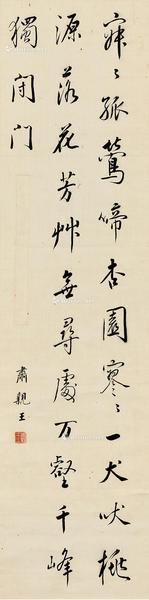 寂〻孤鶯啼杏園寥〻一犬吠桃
源落花芳艸無尋處万壑千峰
獨閉门
肅親王